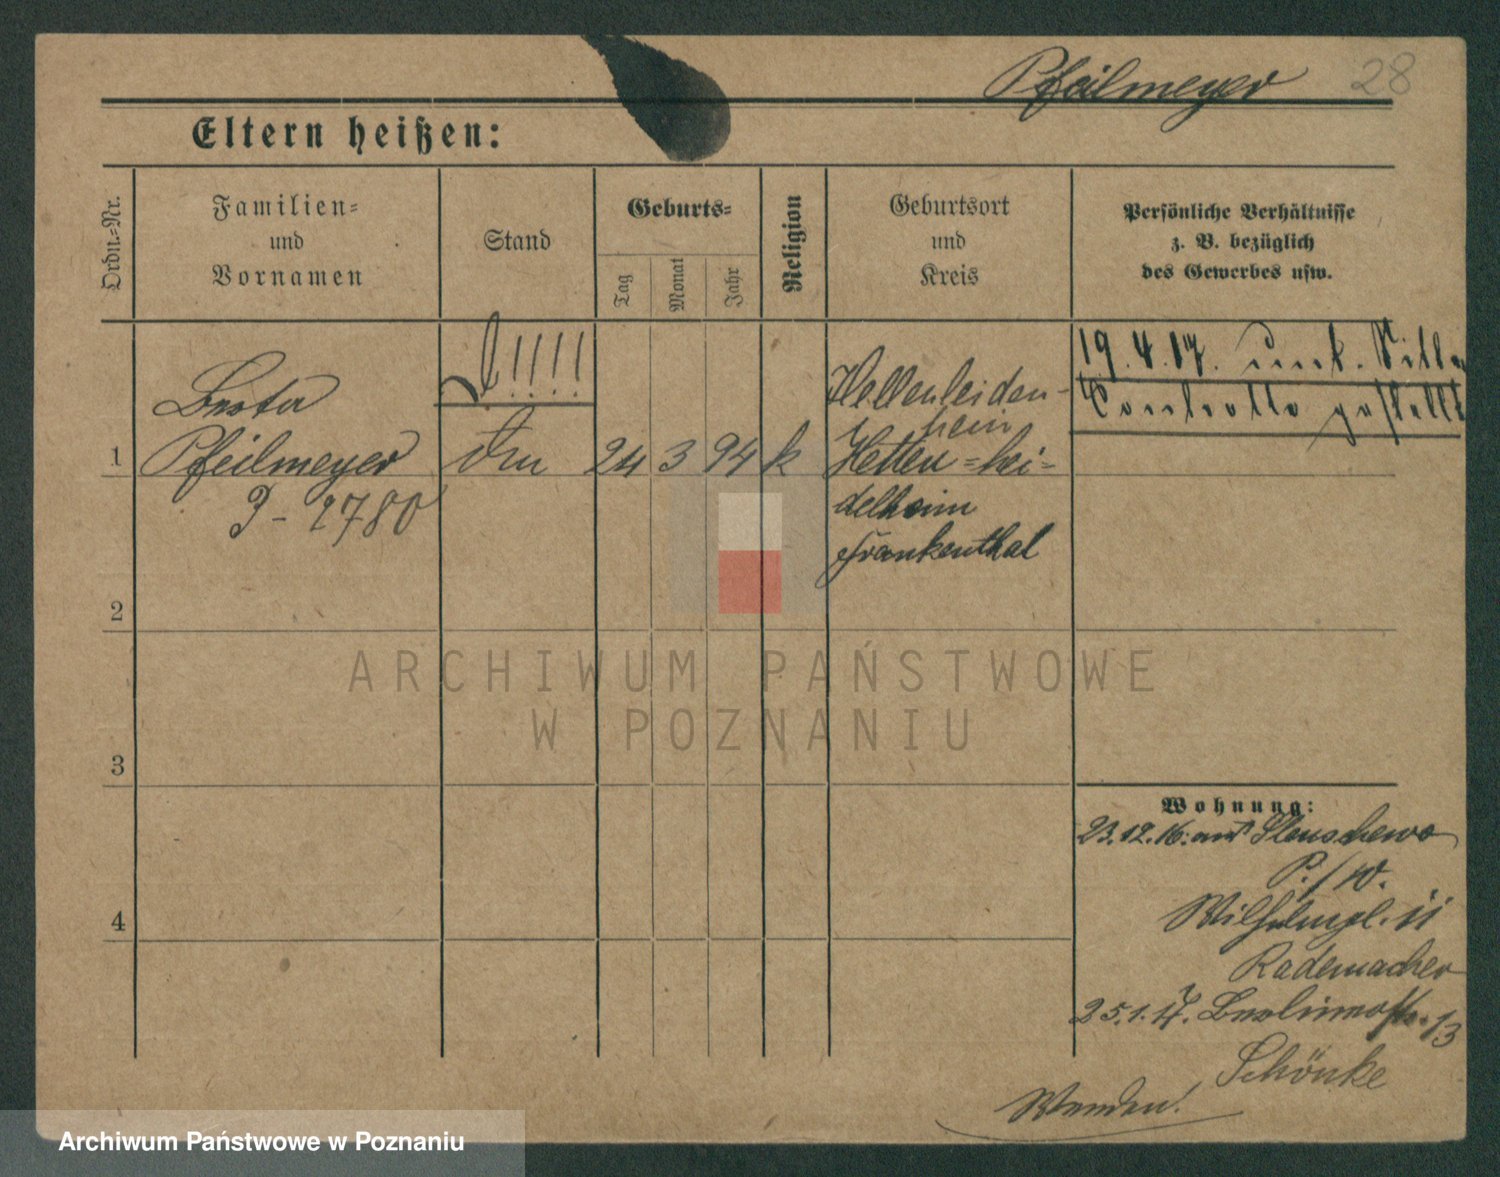 Pfeilmeyer 28
Eltern heißen:
Ordn.-Nr.
Familien-
und
Vornamen
Stand
Geburts-
Tag
Monat
Jahr
Religion
Geburtsort
und
Kreis
Persönliche Verhältnisse
z. B. bezüglich
des Gewerbes usw.
19.4.17. unt. Sitten
Controlle gestellt
!!!!
1
Berta
Pfeilmeyer
2780
24 3 94 k
Hellenleiden-
hein
Hetten=hei-
delheim
Frankenthal
2
3
4
Wohnung:
23.12.16. aus Slenschewo
P./W.
Wilhelmpl. 11
Rademacher
25.1.17. Berlinerstr. 13
Schönke
Wenden!
ARCHIWUM PAŃSTWOWE
W POZNANIU
Archiwum Państwowe w Poznaniu